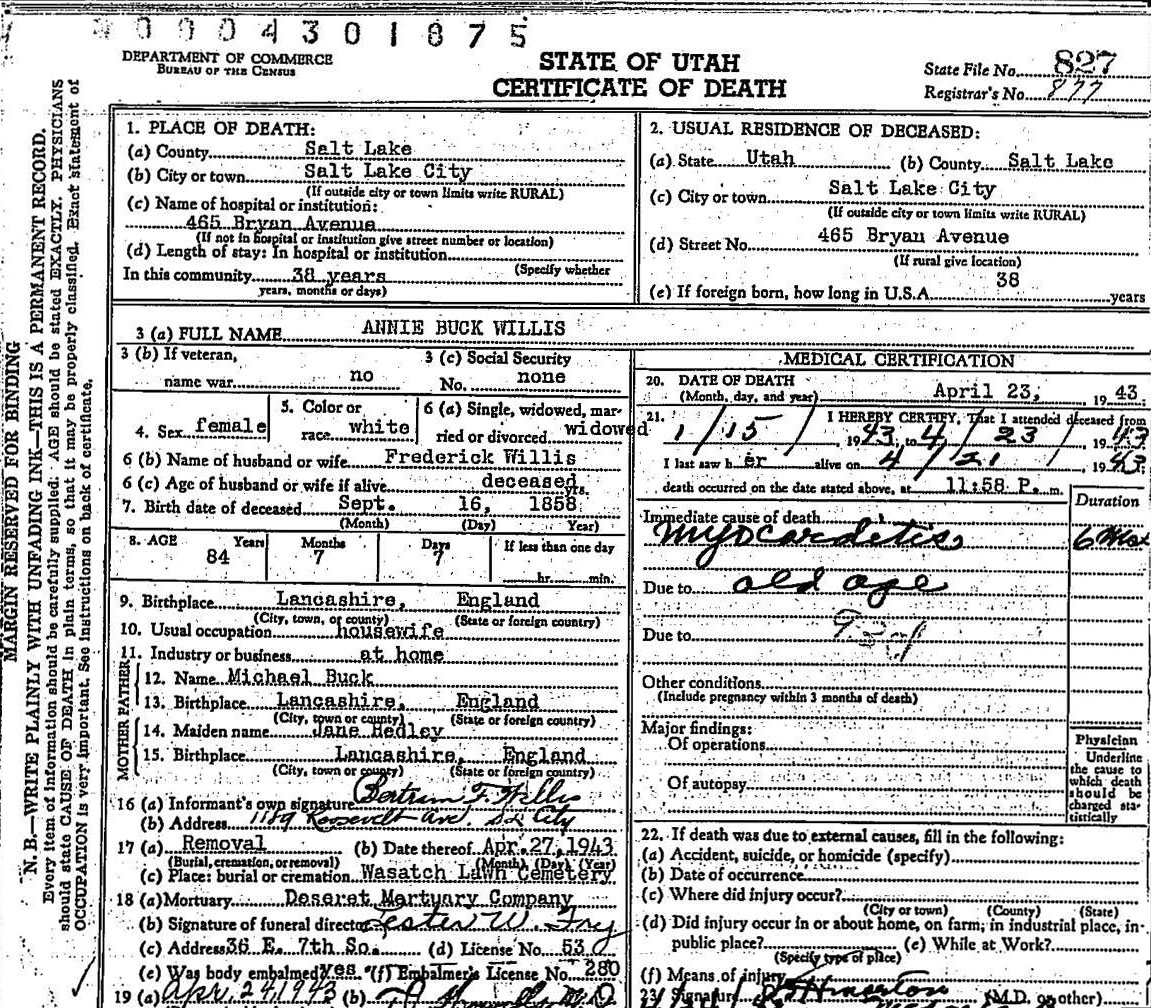 0004301875
DEPARTMENT OF COMMERCE
BUREAU OF THE CENSUS
STATE OF UTAH
CERTIFICATE OF DEATH
State File No. 827
Registrar's No. 877
MARGIN RESERVED FOR BINDING
N. B.—WRITE PLAINLY WITH UNFADING INK—THIS IS A PERMANENT RECORD.
Every item of information should be carefully supplied. AGE should be stated EXACTLY. PHYSICIANS
should state CAUSE OF DEATH in plain terms, so that it may be properly classified. Exact statement of
OCCUPATION is very important. See instructions on back of certificate.
1. PLACE OF DEATH:
(a) County Salt Lake
(b) City or town Salt Lake City
(If outside city or town limits write RURAL)
(c) Name of hospital or institution:
465 Bryan Avenue
(If not in hospital or institution give street number or location)
(d) Length of stay: In hospital or institution
(Specify whether
In this community 38 years
years, months or days)
2. USUAL RESIDENCE OF DECEASED:
(a) State Utah (b) County Salt Lake
(c) City or town Salt Lake City
(If outside city or town limits write RURAL)
(d) Street No. 465 Bryan Avenue
(If rural give location)
(e) If foreign born, how long in U.S.A. 38 years
3 (a) FULL NAME ANNIE BUCK WILLIS
3 (b) If veteran,
name war no
3 (c) Social Security
No. none
4. Sex female
5. Color or
race white
6 (a) Single, widowed, mar-
ried or divorced widowed
6 (b) Name of husband or wife Frederick Willis
6 (c) Age of husband or wife if alive deceased yrs.
7. Birth date of deceased Sept. 16, 1858
(Month) (Day) Year)
8. AGE Years Months Days If less than one day
84 7 7
hr. min.
9. Birthplace Lancashire, England
(City, town, or county) (State or foreign country)
10. Usual occupation housewife
11. Industry or business at home
FATHER
12. Name Michael Buck
13. Birthplace Lancashire, England
(City, town or county) (State or foreign country)
MOTHER
14. Maiden name Jane Hedley
15. Birthplace Lancashire, England
(City, town or county) (State or foreign country)
16 (a) Informant's own signature Bertram F. Willis
(b) Address 1189 Roosevelt Ave. S.L. City
17 (a) Removal (b) Date thereof Apr. 27, 1943
(Burial, cremation, or removal) (Month) (Day) (Year)
(c) Place: burial or cremation Wasatch Lawn Cemetery
18 (a) Mortuary Deseret Mortuary Company
(b) Signature of funeral director Lester W. Fry
(c) Address 36 E. 7th So. (d) License No. 53
(e) Was body embalmed? yes (f) Embalmer's License No. 280
19 (a) Apr. 24, 1943 (b) M.D.
MEDICAL CERTIFICATION
20. DATE OF DEATH
(Month, day, and year) April 23, 1943.
21. I HEREBY CERTIFY, That I attended deceased from
1/15/1943, to 4/23/1943
I last saw her alive on 4/21, 1943.
death occurred on the date stated above, at 11:58 P. m.
Duration
Immediate cause of death
Myocarditis 6 Mos
Due to old age
Due to
Other conditions
(Include pregnancy within 3 months of death)
Major findings:
Of operations
Of autopsy
Physician
Underline
the cause to
which death
should be
charged sta-
tistically
22. If death was due to external causes, fill in the following:
(a) Accident, suicide, or homicide (specify)
(b) Date of occurrence
(c) Where did injury occur?
(City or town) (County) (State)
(d) Did injury occur in or about home, on farm, in industrial place, in
public place? (e) While at Work?
(Specify type of place)
(f) Means of injury
23. Signature (M.D. or other)